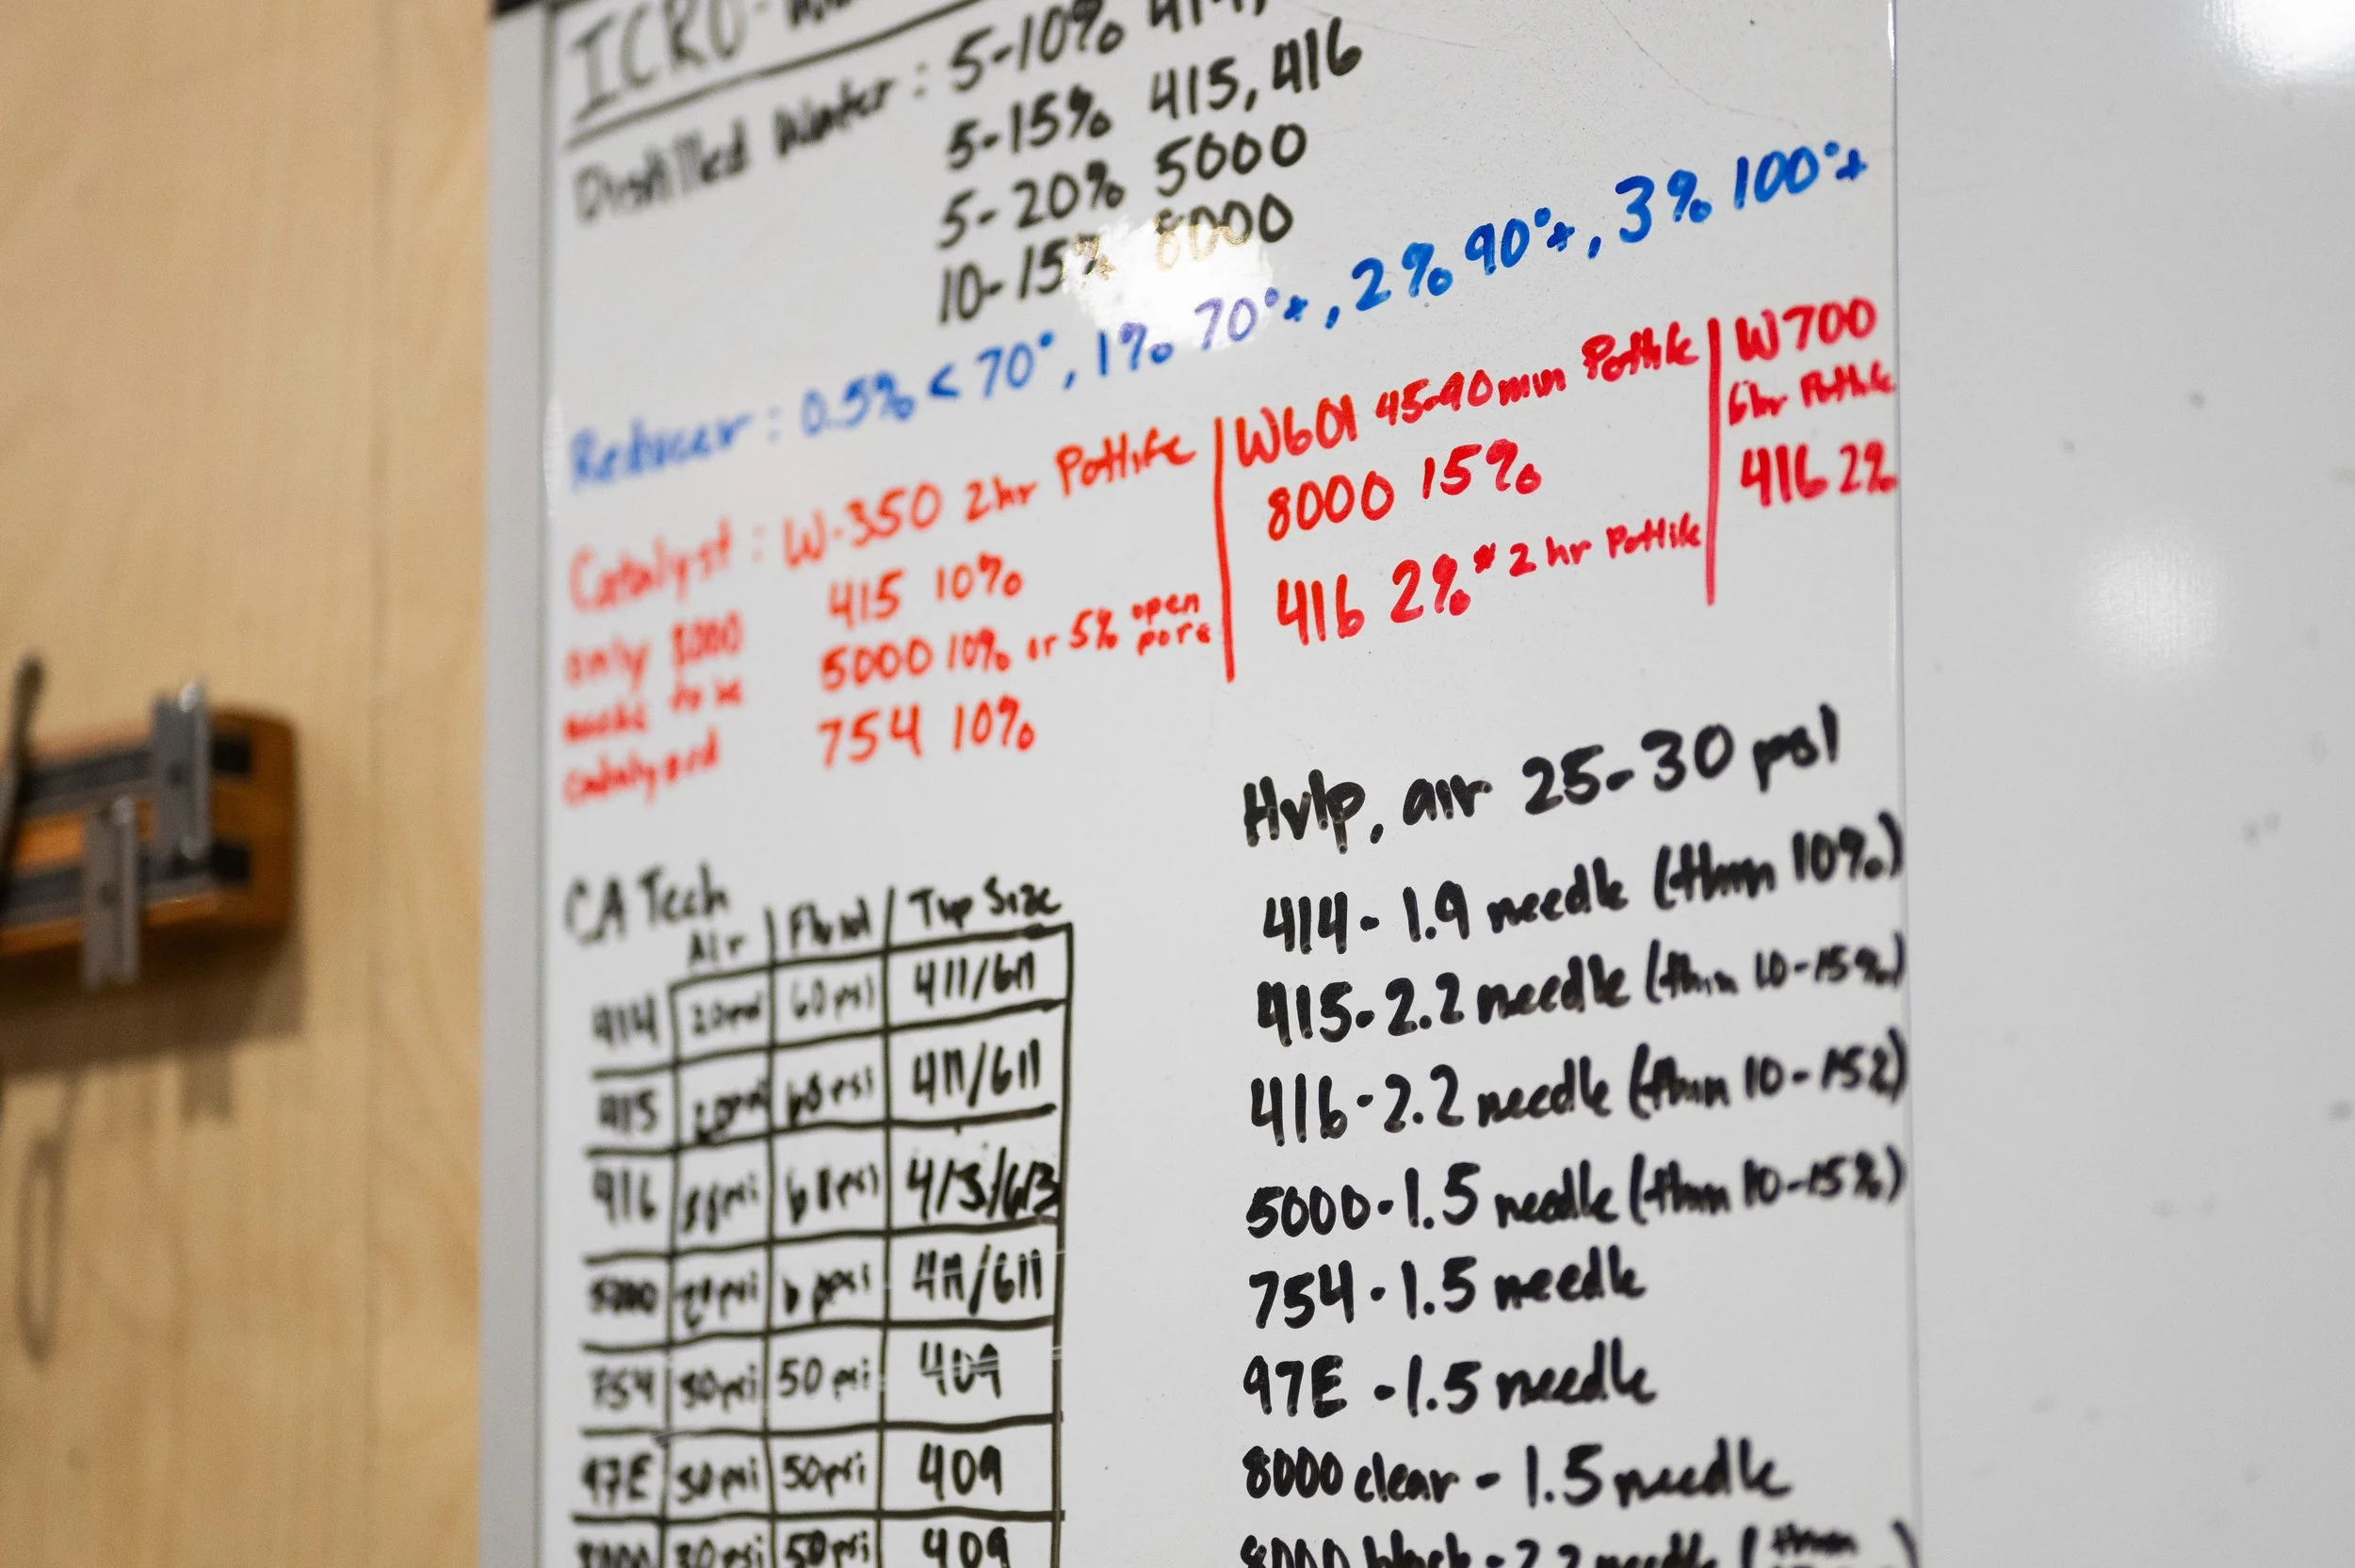 ICRO-
Distilled Water : 5-10% 414,
5-15% 415, 416
5-20% 5000
10-15% 8000
Reducer : 0.5% < 70°, 1% 70°+, 2% 90°+, 3% 100°+
Catalyst : W-350 2hr Potlife
only 8000
needs to be
catalyzed
415 10%
5000 10% or 5% open pore
754 10%
W601 45-90min Potlife
8000 15%
416 2% * 2 hr Potlife
W700
6hr Potlife
416 2%
CA Tech
Air | Fluid | Tip Size
414 20psi 60psi 411/611
415 411/611
416 413/613
5000 411/611
754 30psi 50 psi 409
97E 30psi 50psi 409
8000 30psi 50psi 409
Hvlp, air 25-30 psi
414- 1.9 needle (thin 10%)
415-2.2 needle (thin 10-15%)
416-2.2 needle (thin 10-15%)
5000-1.5 needle (thin 10-15%)
754-1.5 needle
97E -1.5 needle
8000 clear - 1.5 needle
8000 black - 2.2 needle (thin